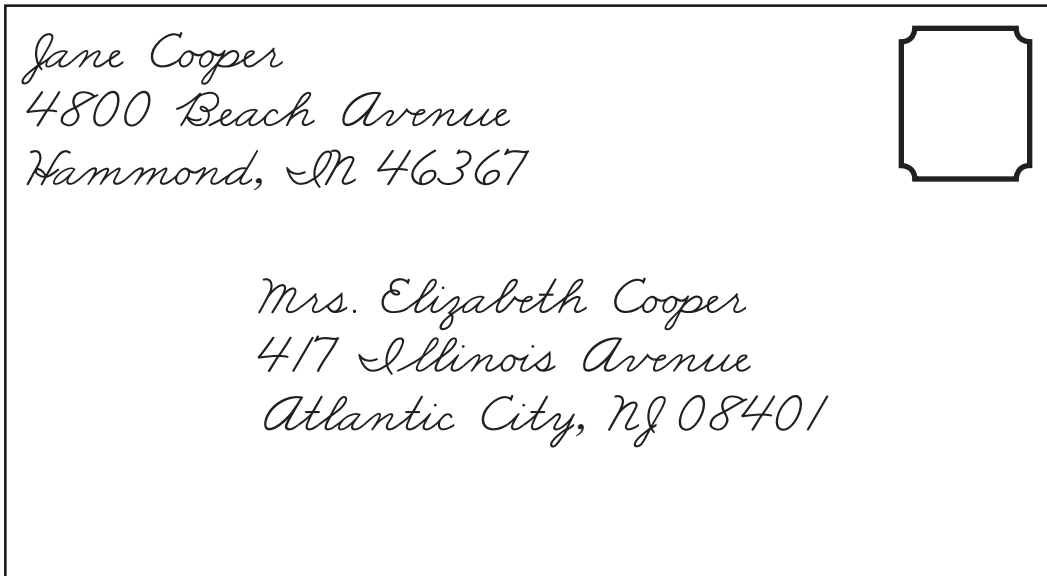 Jane Cooper
4800 Beach Avenue
Hammond, IN 46367
Mrs. Elizabeth Cooper
417 Illinois Avenue
Atlantic City, NJ 08401